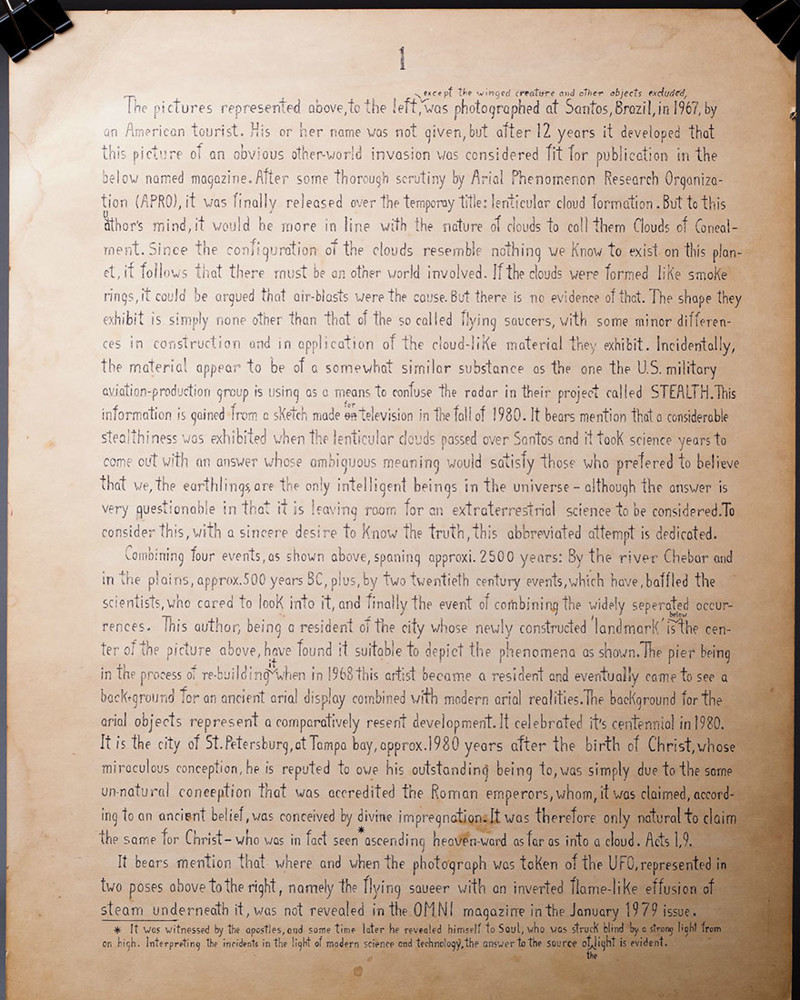 1
except the winged creature and other objects excluded,
The pictures represented above, to the left, was photographed at Santos, Brazil, in 1967, by
an American tourist. His or her name was not given, but after 12 years it developed that
this picture of an obvious other-world invasion was considered fit for publication in the
below named magazine. After some thorough scrutiny by Arial Phenomenon Research Organiza-
tion (APRO), it was finally released over the temporay title: lenticular cloud formation. But to this
u
athor's mind, it would be more in line with the nature of clouds to call them Clouds of Conceal-
ment. Since the configuration of the clouds resemble nothing we know to exist on this plan-
et, it follows that there must be an other world involved. If the clouds were formed like smoke
rings, it could be argued that air-blasts were the cause. But there is no evidence of that. The shape they
exhibit is simply none other than that of the so called flying saucers, with some minor differen-
ces in construction and in application of the cloud-like material they exhibit. Incidentally,
the material appear to be of a somewhat similar substance as the one the U.S. military
aviation-production group is using as a means to confuse the radar in their project called STEALTH. This
for
information is gained from a sketch made on television in the fall of 1980. It bears mention that a considerable
stealthiness was exhibited when the lenticular clouds passed over Santos and it took science years to
come out with an answer whose ambiguous meaning would satisfy those who prefered to believe
that we, the earthlings, are the only intelligent beings in the universe - although the answer is
very questionable in that it is leaving room for an extraterrestrial science to be considered. To
consider this, with a sincere desire to know the truth, this abbreviated attempt is dedicated.
Combining four events, as shown above, spaning approxi. 2500 years: By the river Chebar and
in the plains, approx. 500 years BC, plus, by two twentieth century events, which have, baffled the
scientists, who cared to look into it, and finally the event of combining the widely seperated occur-
below
rences. This author, being a resident of the city whose newly constructed 'landmark' is the cen-
ter of the picture above, have found it suitable to depict the phenomena as shown. The pier being
it
in the process of re-building when in 1968 this artist became a resident and eventually came to see a
background for an ancient arial display combined with modern arial realities. The background for the
arial objects represent a comparatively resent development. It celebrated it's centennial in 1980.
It is the city of St. Petersburg, at Tampa bay, approx. 1980 years after the birth of Christ, whose
miraculous conception, he is reputed to owe his outstanding being to, was simply due to the same
un-natural conception that was accredited the Roman emperors, whom, it was claimed, accord-
ing to an ancient belief, was conceived by divine impregnation. It was therefore only natural to claim
the same for Christ - who was in fact seen * ascending heaven-ward as far as into a cloud. Acts 1,9.
It bears mention that where and when the photograph was taken of the UFO, represented in
two poses above to the right, namely the flying saucer with an inverted flame-like effusion of
steam underneath it, was not revealed in the OMNI magazine in the January 1979 issue.
* It was witnessed by the apostles, and some time later he revealed himself to Saul, who was struck blind by a strong light from
on high. Interpreting the incidents in the light of modern science and technology, the answer to the source of light is evident.
the